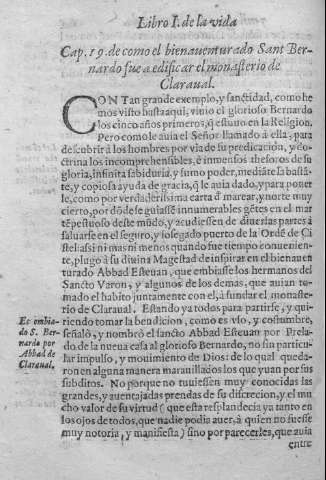 Libro I. de la vida
Cap. 19. de como el bienauenturado Sant Ber-
nardo fue a edificar el monasterio de
Claraual.
CON Tan grande exemplo, y sanctidad, como he
mos visto hasta aqui, viuio el glorioso Bernardo
los cinco años primeros, q̃ estuuo en la Religion.
Pero como le aui a el Señor llamado à ella, para
descubrir à los hombres por via de su predicacion, y do-
ctrina los incomprehensibles, è inmensos thesoros de su
gloria, infinita sabiduria, y sumo poder, mediãte la bastã-
te, y copiosa ayuda de gracia, q̃ le auia dado, y para poner
le, como por verdaderissima carta d̃ marear, y norte muy
cierto, por dõde se guiassẽ innumerables gẽtes en el mar
tẽpestuoso deste mũdo, y acudiessen de diuersas partes à
saluarse en el seguro, y sosegado puerto de la Ordẽ de Ci
stel assi ni mas ni menos quando fue tiempo conuenien-
te, plugò à su diuina Magestad de inspirar en el bienauen
turado Abbad Esteuan, que embiasse los hermanos del
Sancto Varon, y algunos de los demas, que auian to-
mado el habito juntamente con el, à fundar el monaste-
rio de Claraual. Estando ya todos para partirse, y qui-
riendo tomar la bendicion, como es vso, y costumbre,
señalò, y nombrò el sancto Abbad Esteuan por Prela-
do de la nueua casa al glorioso Bernardo, no sin particu-
lar impulso, y mouimiento de Dios: de lo qual queda-
ron en alguna manera marauillados los que yuan por sus
subditos. No porque no tuuiessen muy conocidas las
grandes, y auentajadas prendas de su discrecion, y el mu
cho valor de su virtud ( que esta resplandecia ya tanto en
los ojos de todos, que nadie podia auer, à quien no fuesse
muy notoria, y manifiesta) sino por parecerles, que auia
entre
Es embia-
do S. Ber-
nardo por
Abbad de
Claraual.